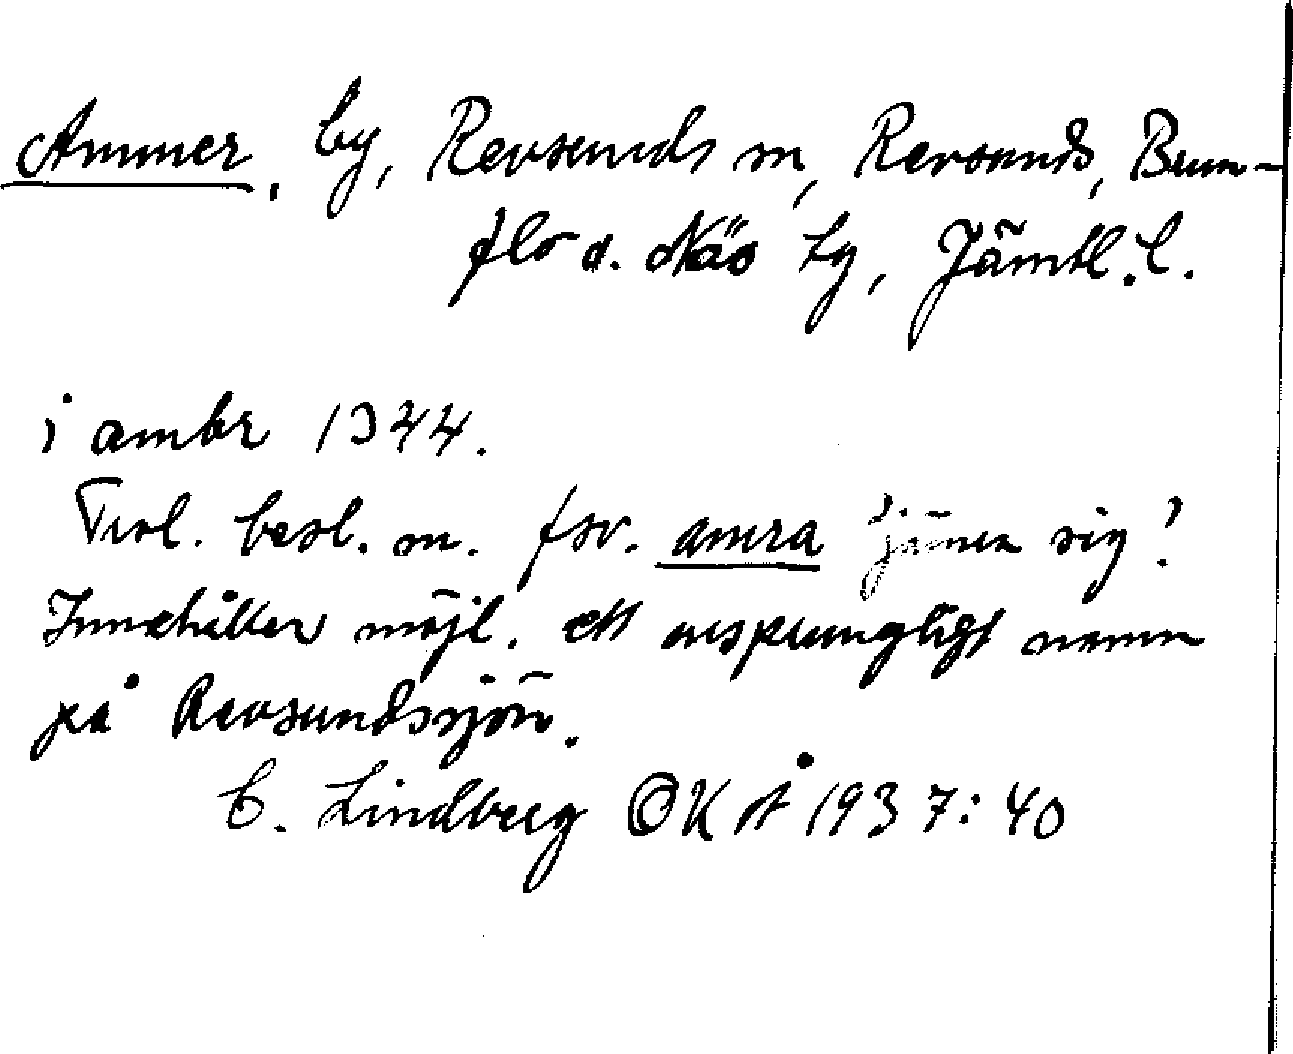 Ammer, by, Revsunds sn, Revsunds, Brun-
flo o. Näs tg, Jämtl. l.
i ambr 1344.
Trol. besl. m. fsv. amra 'jämra sig'.
Innehåller möjl. ett ursprungligt namn
på Revsundssjön.
C. Lindberg OK Å 1937: 40